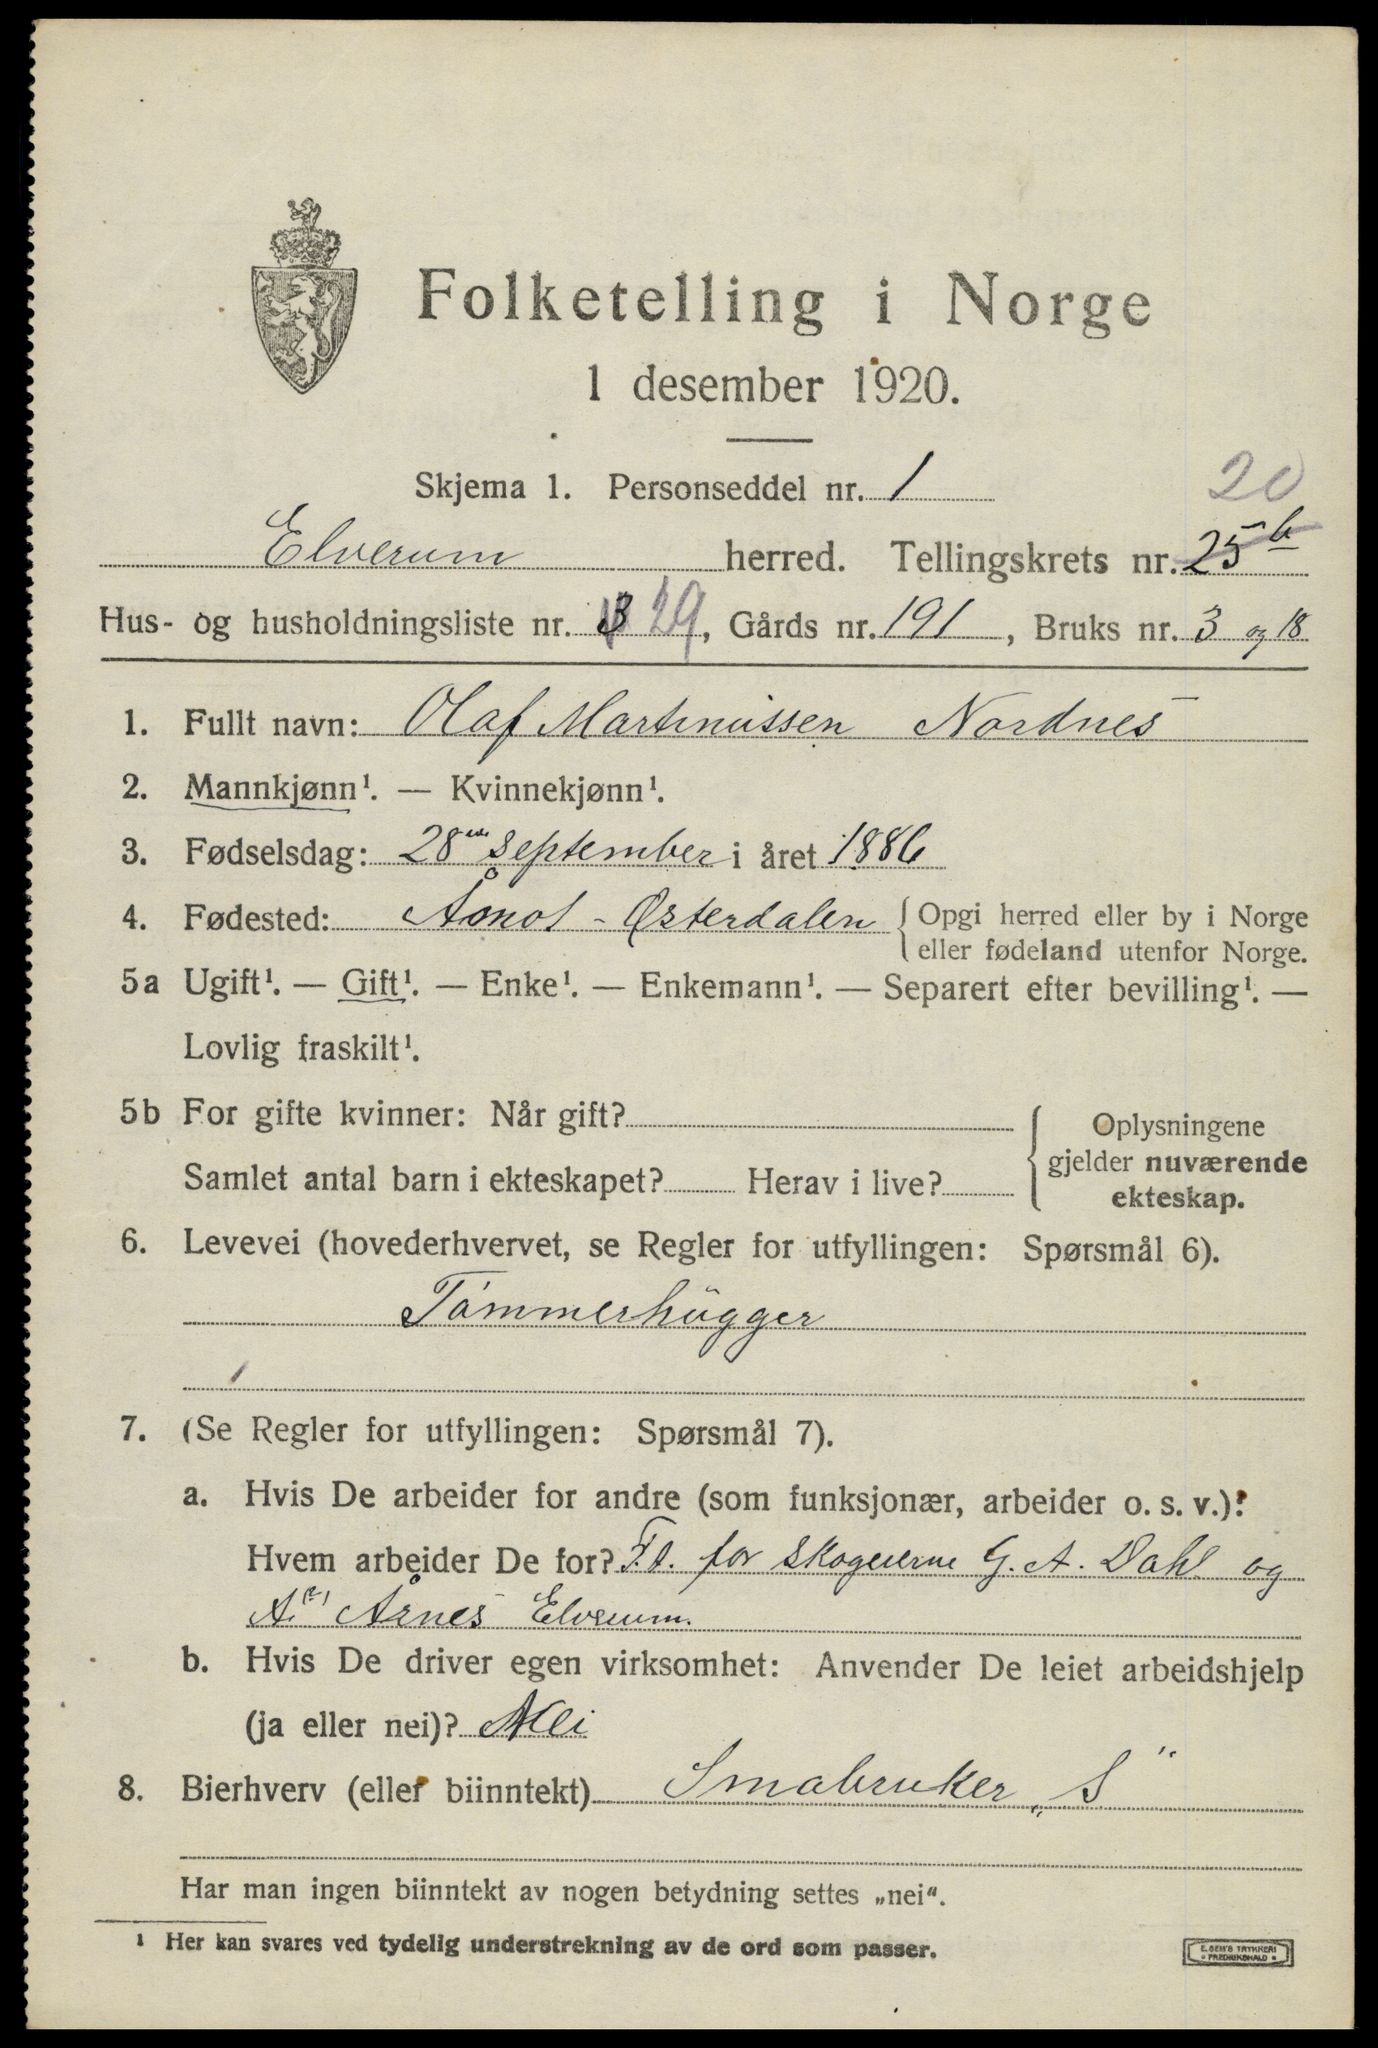 Folketelling i Norge
1 desember 1920.
Skjema 1. Personseddel nr. 1
20
Elverum herred. Tellingskrets nr. 25b
Hus- og husholdningsliste nr. 29, Gårds nr. 191, Bruks nr. 3 og 18
1. Fullt navn: Olaf Martinussen Nordnes
2. Mannkjønn¹. — Kvinnekjønn¹.
3. Fødselsdag: 28de september i året 1886
4. Fødested: Åmot - Østerdalen { Opgi herred eller by i Norge
eller fødeland utenfor Norge.
5a Ugift¹. — Gift¹. — Enke¹. — Enkemann¹. — Separert efter bevilling¹. —
Lovlig fraskilt¹.
5b For gifte kvinner: Når gift?
Samlet antal barn i ekteskapet? Herav i live?
Oplysningene
gjelder nuværende
ekteskap.
6. Levevei (hovederhvervet, se Regler for utfyllingen: Spørsmål 6).
Tømmerhugger
7. (Se Regler for utfyllingen: Spørsmål 7).
a. Hvis De arbeider for andre (som funksjonær, arbeider o. s. v.):
Hvem arbeider De for? F.t. for skogeierne G. A. Dahl og
A. Årnes Elverum.
b. Hvis De driver egen virksomhet: Anvender De leiet arbeidshjelp
(ja eller nei)? Nei
8. Bierhverv (eller biinntekt) Smabruker „S“
Har man ingen biinntekt av nogen betydning settes „nei“.
¹ Her kan svares ved tydelig understrekning av de ord som passer.
E. SEM'S TRYKKERI
FREDRIKSHALD